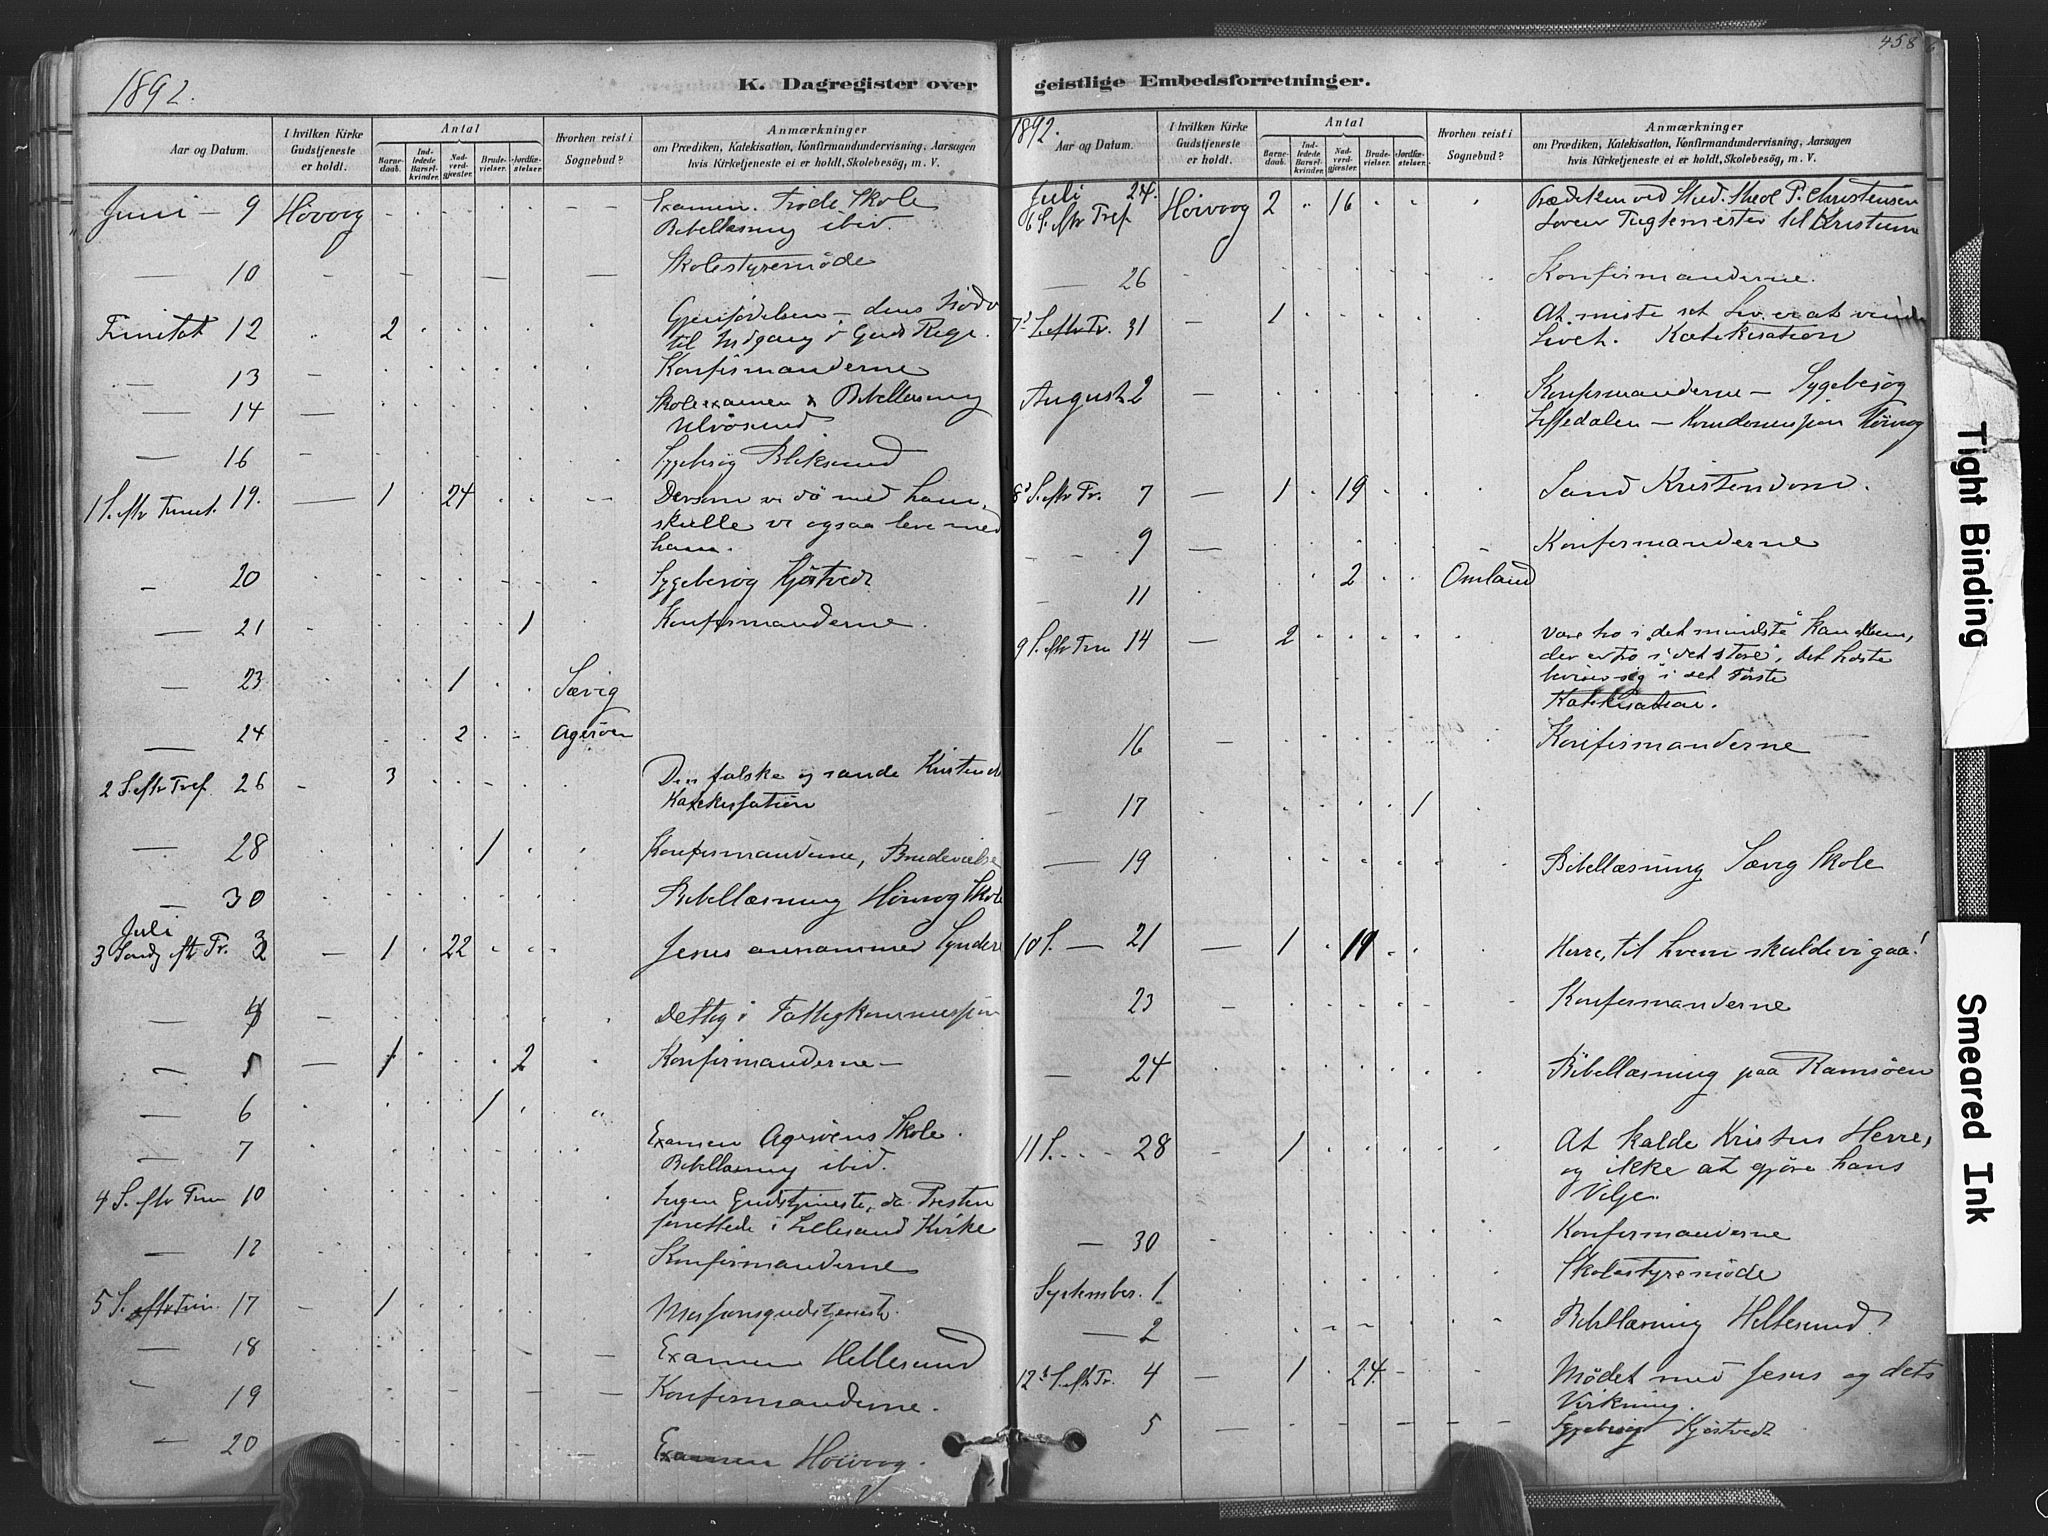 1892.
K. Dagregister over
Aar og Datum.
I hvilken Kirke Gudstjeneste er holdt.
Antal
Barnedaab.
Indledede Barselkvinder.
Nadverdgjæster.
Brudevielser.
Jordfæstelser.
Hvorhen reist i Sognebud?
Anmærkninger
om Prædiken, Katekisation, Konfirmandundervisning, Aarsagen
hvis Kirketjeneste ei er holdt, Skolebesøg, m. V.
Juni - 9 Höivaag Examen. Trøde Skole
Bibellæsning ibid.
10 Skolestyremöde
Trinitat 12 2 Gjenfödelsen - dens
til Indgang i Guds Rige.
13 Konfirmanderne
14 Skoleexamen & Bibellæsning
Ulvösund
16 Sygebesög Bliksund
1 S. eftr Trinit. 19. 1 24 Dersom vi dö med ham,
skulle vi ogsaa leve med
ham.
20 Sygebesög Kjöstvedt
21 1 Konfirmanderne.
23 1 Sævig
24 2 Ageröen
2 S. eftr Tref. 26 3 Den falske og sande
Katekisation
28 1 Konfirmanderne, Brudevielse
30 Bibellæsning Höivaag Skole
Juli
3 Sondg eft Tr. 3 1 22 Jesus annammer Syndere
4 Deltog i Fattigkommissjon
5 1 2 Konfirmanderne -
6 1
7 Examen Ageröens Skole.
Bibellæsning ibid.
4 S. eftr Trin 10 Ingen Gudstjeneste, da Presten
forrettede i Lillesand Kirke
12 Konfirmanderne
5 S. eftr Trin. 17 1 Missionsgudstjeneste.
18 Examen Hellesund
19 Konfirmanderne.
20 Examen Höivaag.
458
geistlige Embedsforretninger.
1892.
Aar og Datum.
I hvilken Kirke Gudstjeneste er holdt.
Antal
Barnedaab.
Indledede Barselkvinder.
Nadverdgjæster.
Brudevielser.
Jordfæstelser.
Hvorhen reist i Sognebud?
Anmærkninger
om Prædiken, Katekisation, Konfirmandundervisning, Aarsagen
hvis Kirketjeneste ei er holdt, Skolebesøg, m. V.
Juli 24.
6 S. eftr Tref. Höivaag 2 16 Prædiken ved Stud. theol P. Christensen
Loven Tugtemester til Kristum
26 Konfirmanderne.
7d S. eftr Tr. 31 1 At miste sit Liv er at vinde
Livet. Katekisation
August 2 Konfirmanderne - Sygebesög
8d S. eftr Tr. 7 1 19 Sand Kristendom.
9 Konfirmanderne
11 2 Omland
9 S. eftr Trin 14 2 Være tro i det mindste kan
der er tro i det store, det
i det Förste
Katekisation.
16 Konfirmanderne
17 1
19 Bibellæsning Sævig Skole
10 S. - 21 1 19 Herre, til hvem skulde vi gaa!
23 Konfirmanderne
24 Bibellæsning paa Ramsöen
11 S. - - 28 1 At kalde Kristus Herre,
og ikke at gjöre hans
Vilje.
30 Konfirmanderne
September. 1 Skolestyremöde
2 Bibellæsning Hellesund.
12d S. eftr Tr. 4 1 24 Mödet med Jesus og dets
Virkning.
5 Sygebesög Kjöstvedt
Tight Binding
Smeared Ink